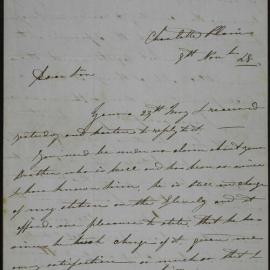 Charlotte Plains
8th Nov 48
Dear Son
Yours 29th May I received
yesterday and hasten to reply to it.
You need be under no alarm about your
Brother who is well and has been so since
I have known him, he is still in charge
of my station on the and it
affords me pleasure to state that he has
since he took charge of it given me
every satisfaction in as much that I